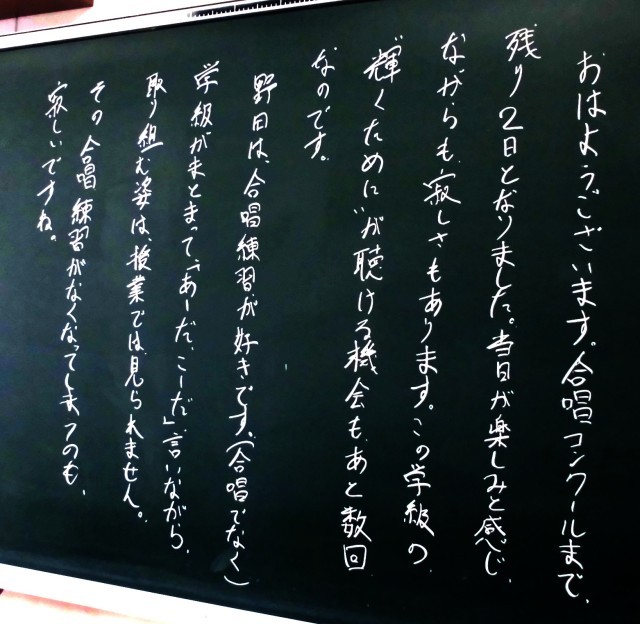 おはようございます。合唱コンクールまで、
残り2日となりました。当日が楽しみと感じ、
ながらも、寂しさもあります。この学級の
"輝くために"が聴ける機会も、あと数回
なのです。
野田は、合唱練習が好きです。(合唱でなく)
学級がまとまって、「あーだ、こーだ」言いながら、
取り組む姿は、授業では見られません。
その合唱練習がなくなってしまうのも、
寂しいですね。